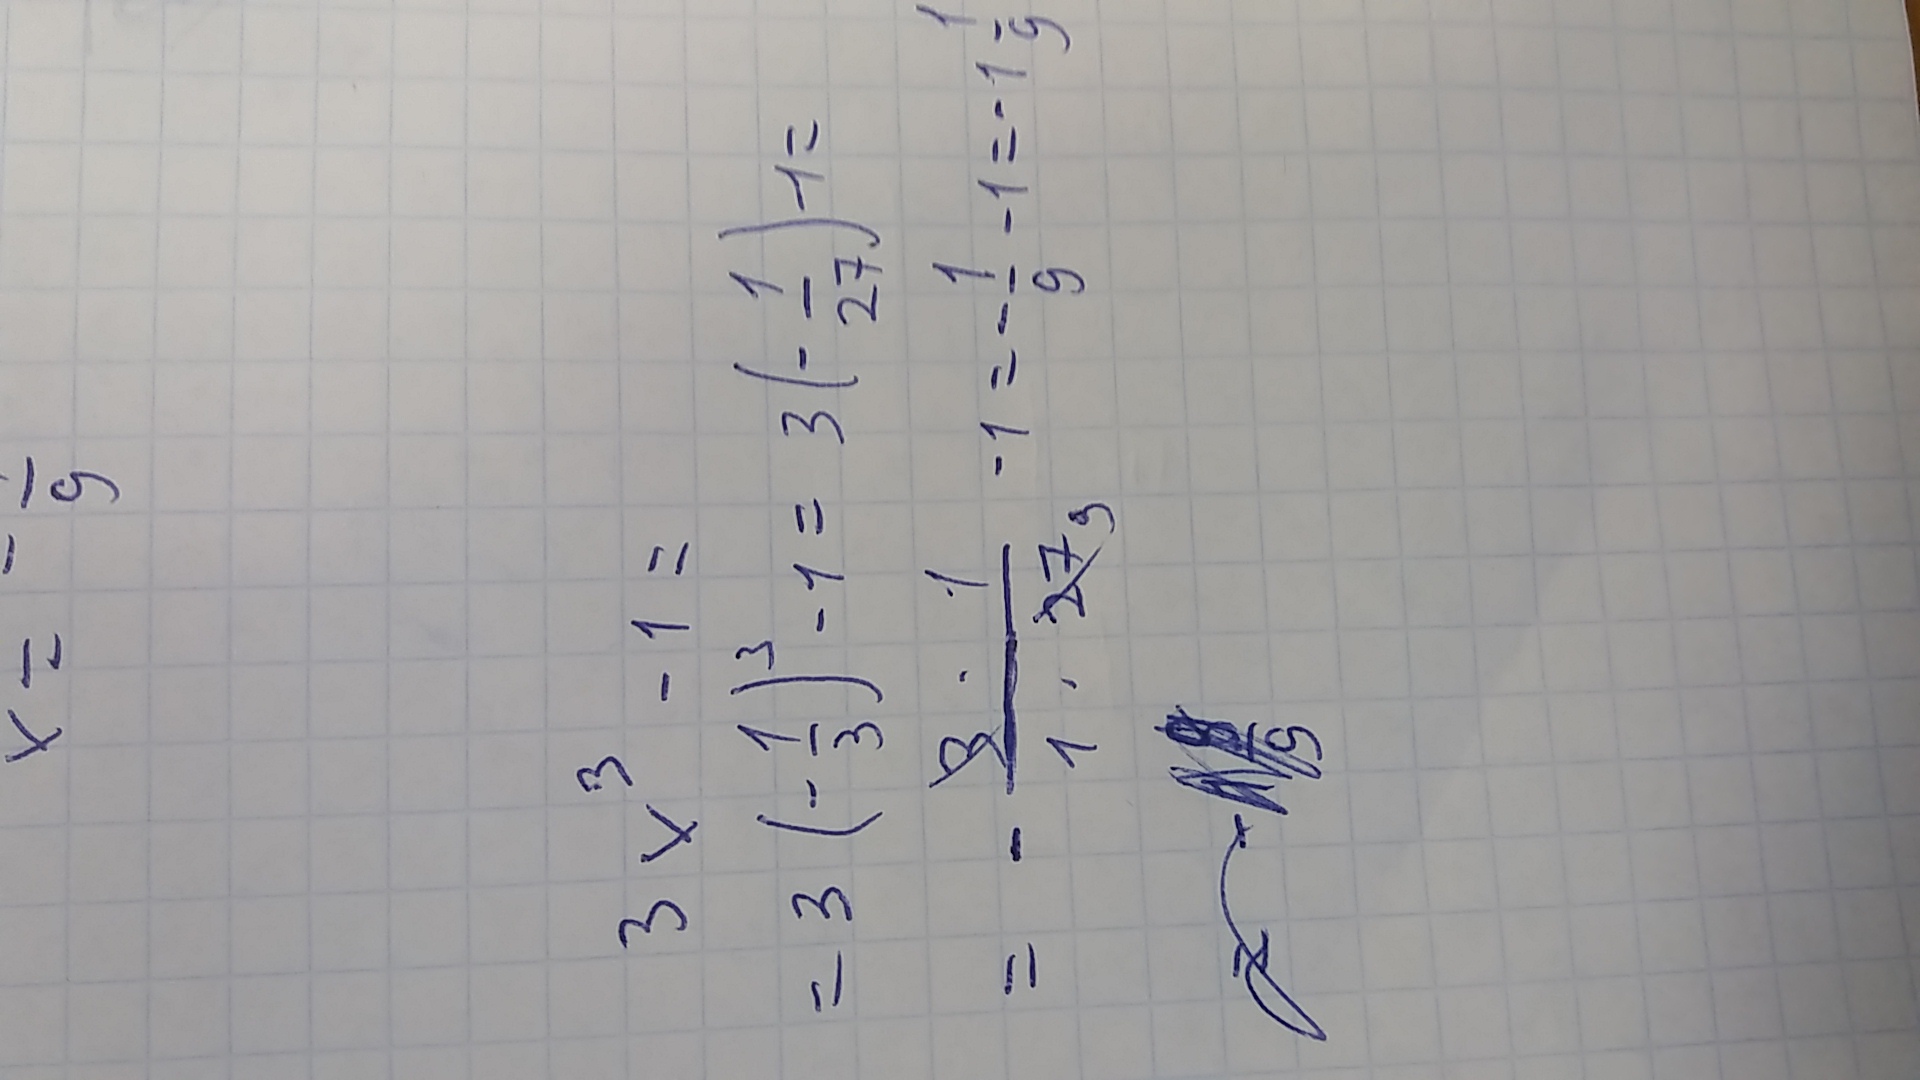 x = -1/9
3x³ - 1 =
= 3(-1/3)³ - 1 = 3(-1/27) - 1 =
= - 3 · 1 / 1 · 27 9 - 1 = -1/9 - 1 = -1 1/9